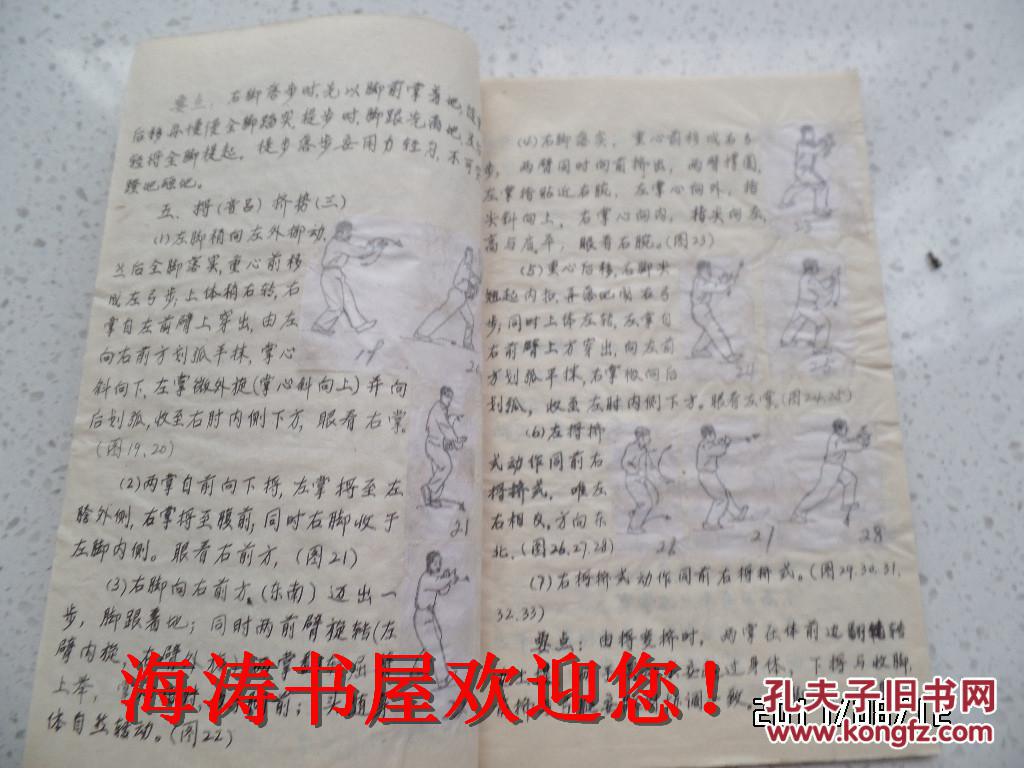 要点：右脚落步时，先以脚前掌着地，随
后移再慢慢全脚踏实，提步时，脚跟先离地，
轻将全脚提起。提步落步要用力轻匀，不可
蹬地砸地。
五、捋(音吕)挤势(三)
(1)左脚稍向左外挪动，
然后全脚落实，重心前移
成左弓步，上体稍右转，右
掌自左前臂上穿出，由左
向右前方划弧平抹，掌心
斜向下，左掌微外旋(掌心斜向上)并向
后划弧，收至右肘内侧下方，眼看右掌。
(图19、20)
(2)两掌自前向下捋，左掌捋至左
胯外侧，右掌捋至腹前，同时右脚收于
左脚内侧。眼看右前方，(图21)
(3)右脚向右前方(东南)迈出一
步，脚跟着地；同时两前臂旋转(左
臂内旋，右臂外旋)
上举，
体自然转动。(图22)
19
20
21
(4)右脚落实，重心前移成右弓
步，两臂同时向前挤出，两臂撑圆，
左掌指贴近右腕，左掌心向外，指
尖斜向上，右掌心向内，指尖向左，
高与肩平；眼看右腕。(图23)
(5)重心后移，右脚尖
翘起内扣，再落地成右弓
步；同时上体左转，左掌自
右前臂上方穿出，向左前
方划弧平抹，右掌微向后
划弧，收至左肘内侧下方。眼看左掌。(图24、25)
(6)左捋挤
式动作同前右
捋挤式，唯左
右相反。方向东
北。(图26、27、28)
(7)右捋挤式动作同前右捋挤式。(图29、30、31、
32、33)
要点：由捋变挤时，两掌在体前边翻转
过身体，下捋与收脚，
23
24
25
26
27
28
海涛书屋欢迎您！
孔夫子旧书网
www.kongfz.com